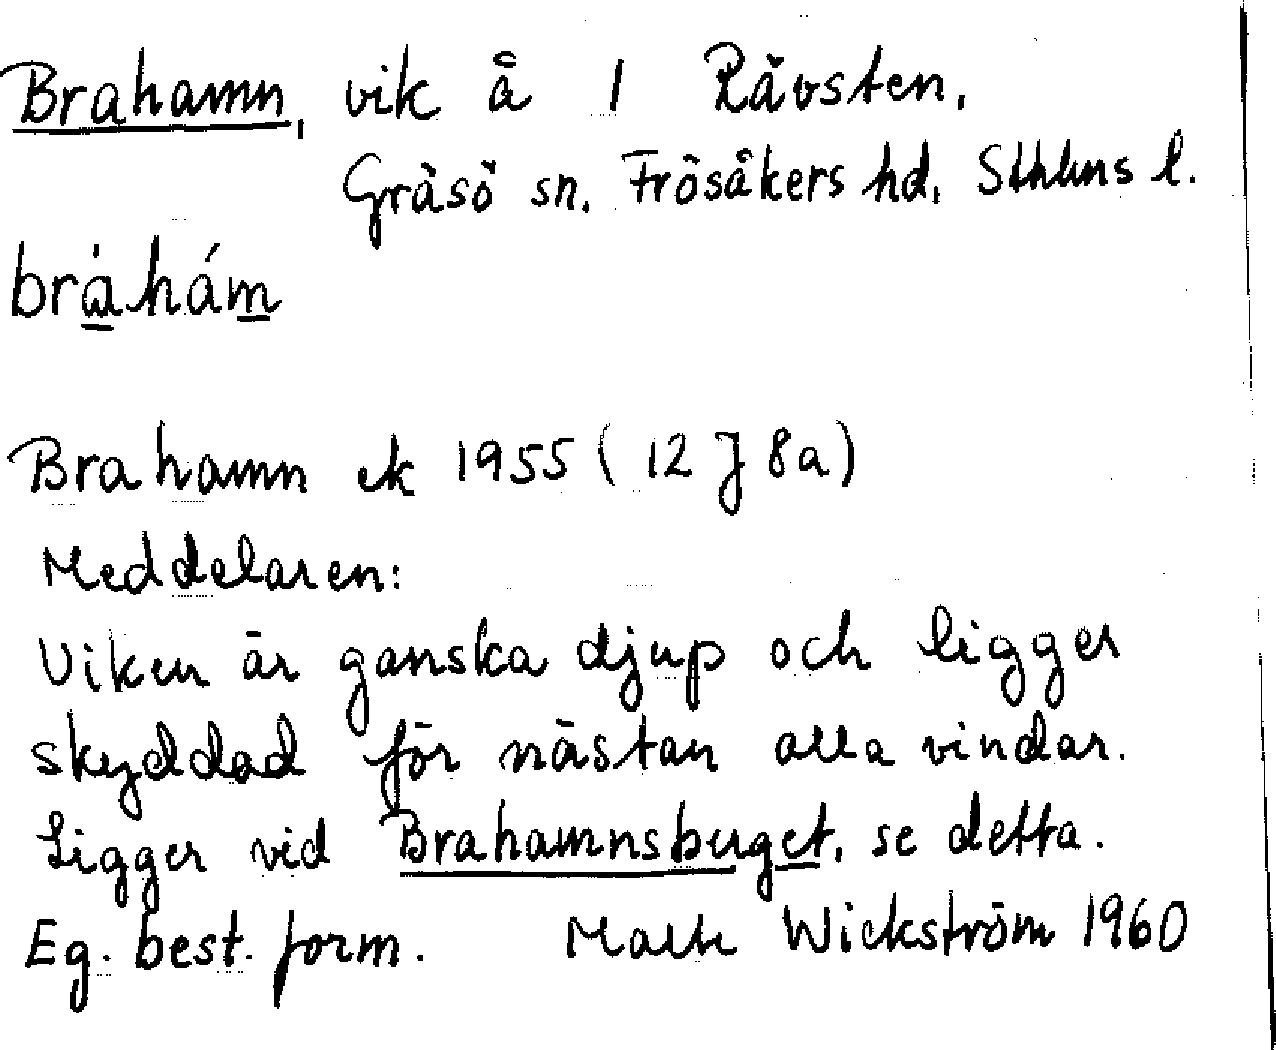 Brahamn, vik å 1 Rävsten,
Gräsö sn. Frösåkers hd. Sthlms l.
bràhám
Brahamn ek 1955 (12 J 8a)
Meddelaren:
Viken är ganska djup och ligger
skyddad för nästan alla vindar.
Ligger vid Brahamnsbuget, se detta.
Eg. best. form. Wickström 1960